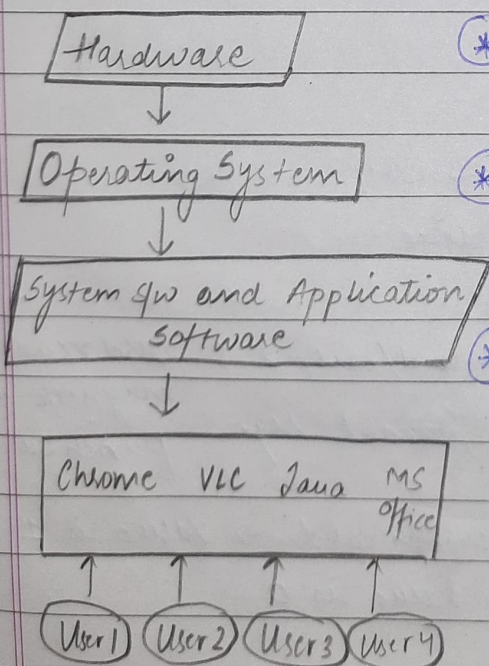 Hardware
Operating System
System S/W and Application
Software
Chrome VLC Java MS
Office
User 1 User 2 User 3 User 4